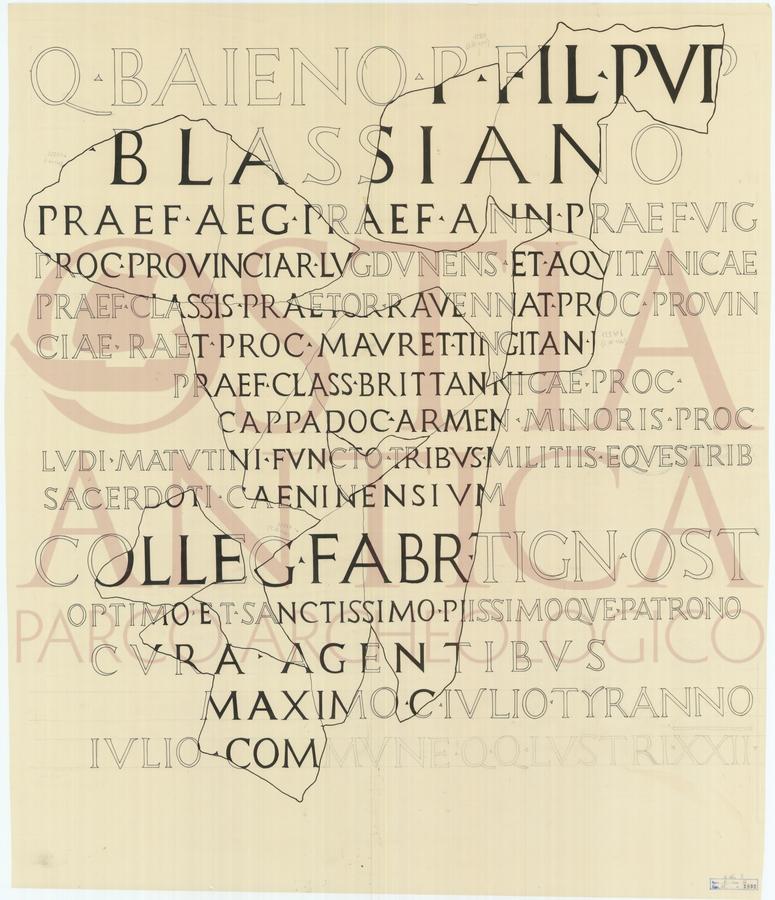 Q·BAIENO·P·FIL·PVP
BLASSIANO
PRAEF·AEG·PRAEF·ANN·PRAEF·VIG
PROC·PROVINCIAR·LVGDVNENS·ET·AQVITANICAE
PRAEF·CLASSIS·PRAETOR·RAVENNAT·PROC·PROVIN
CIAE·RAET·PROC·MAVRET·TINGITAN·
PRAEF·CLASS·BRITTANNICAE·PROC·
CAPPADOC·ARMEN·MINORIS·PROC
LVDI·MATVTINI·FVNCTO·TRIBVS·MILITIIS·EQVESTRIB
SACERDOTI·CAENINENSIVM
COLLEG·FABR·TIGN·OST
OPTIMO·ET·SANCTISSIMO·PIISSIMOQVE·PATRONO
CVRA·AGENTIBVS
MAXIMO·C·IVLIO TYRANNO
IVLIO·COMMVNE·Q·Q·LVSTRI XXII
OSTIA
ANTICA
PARCO ARCHEOLOGICO